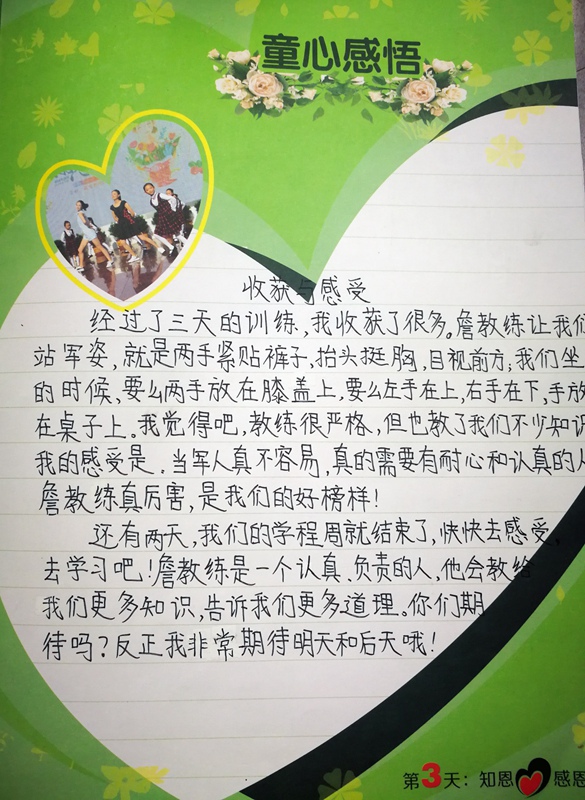 童心感悟
收获与感受
经过了三天的训练,我收获了很多。詹教练让我们
站军姿,就是两手紧贴裤子,抬头挺胸,目视前方;我们坐
的时候、要么两手放在膝盖上,要么左手在上,右手在下,手放
在桌子上。我觉得吧,教练很严格,但也教了我们不少知识
我的感受是.当军人真不容易,真的需要有耐心和认真的人
詹教练真厉害,是我们的好榜样!
还有两天,我们的学程周就结束了,快快去感受、
去学习吧!詹教练是一个认真、负责的人,他会教给
我们更多知识,告诉我们更多道理。你们期
待吗?反正我非常期待明天和后天哦!
第3天:知恩 感恩